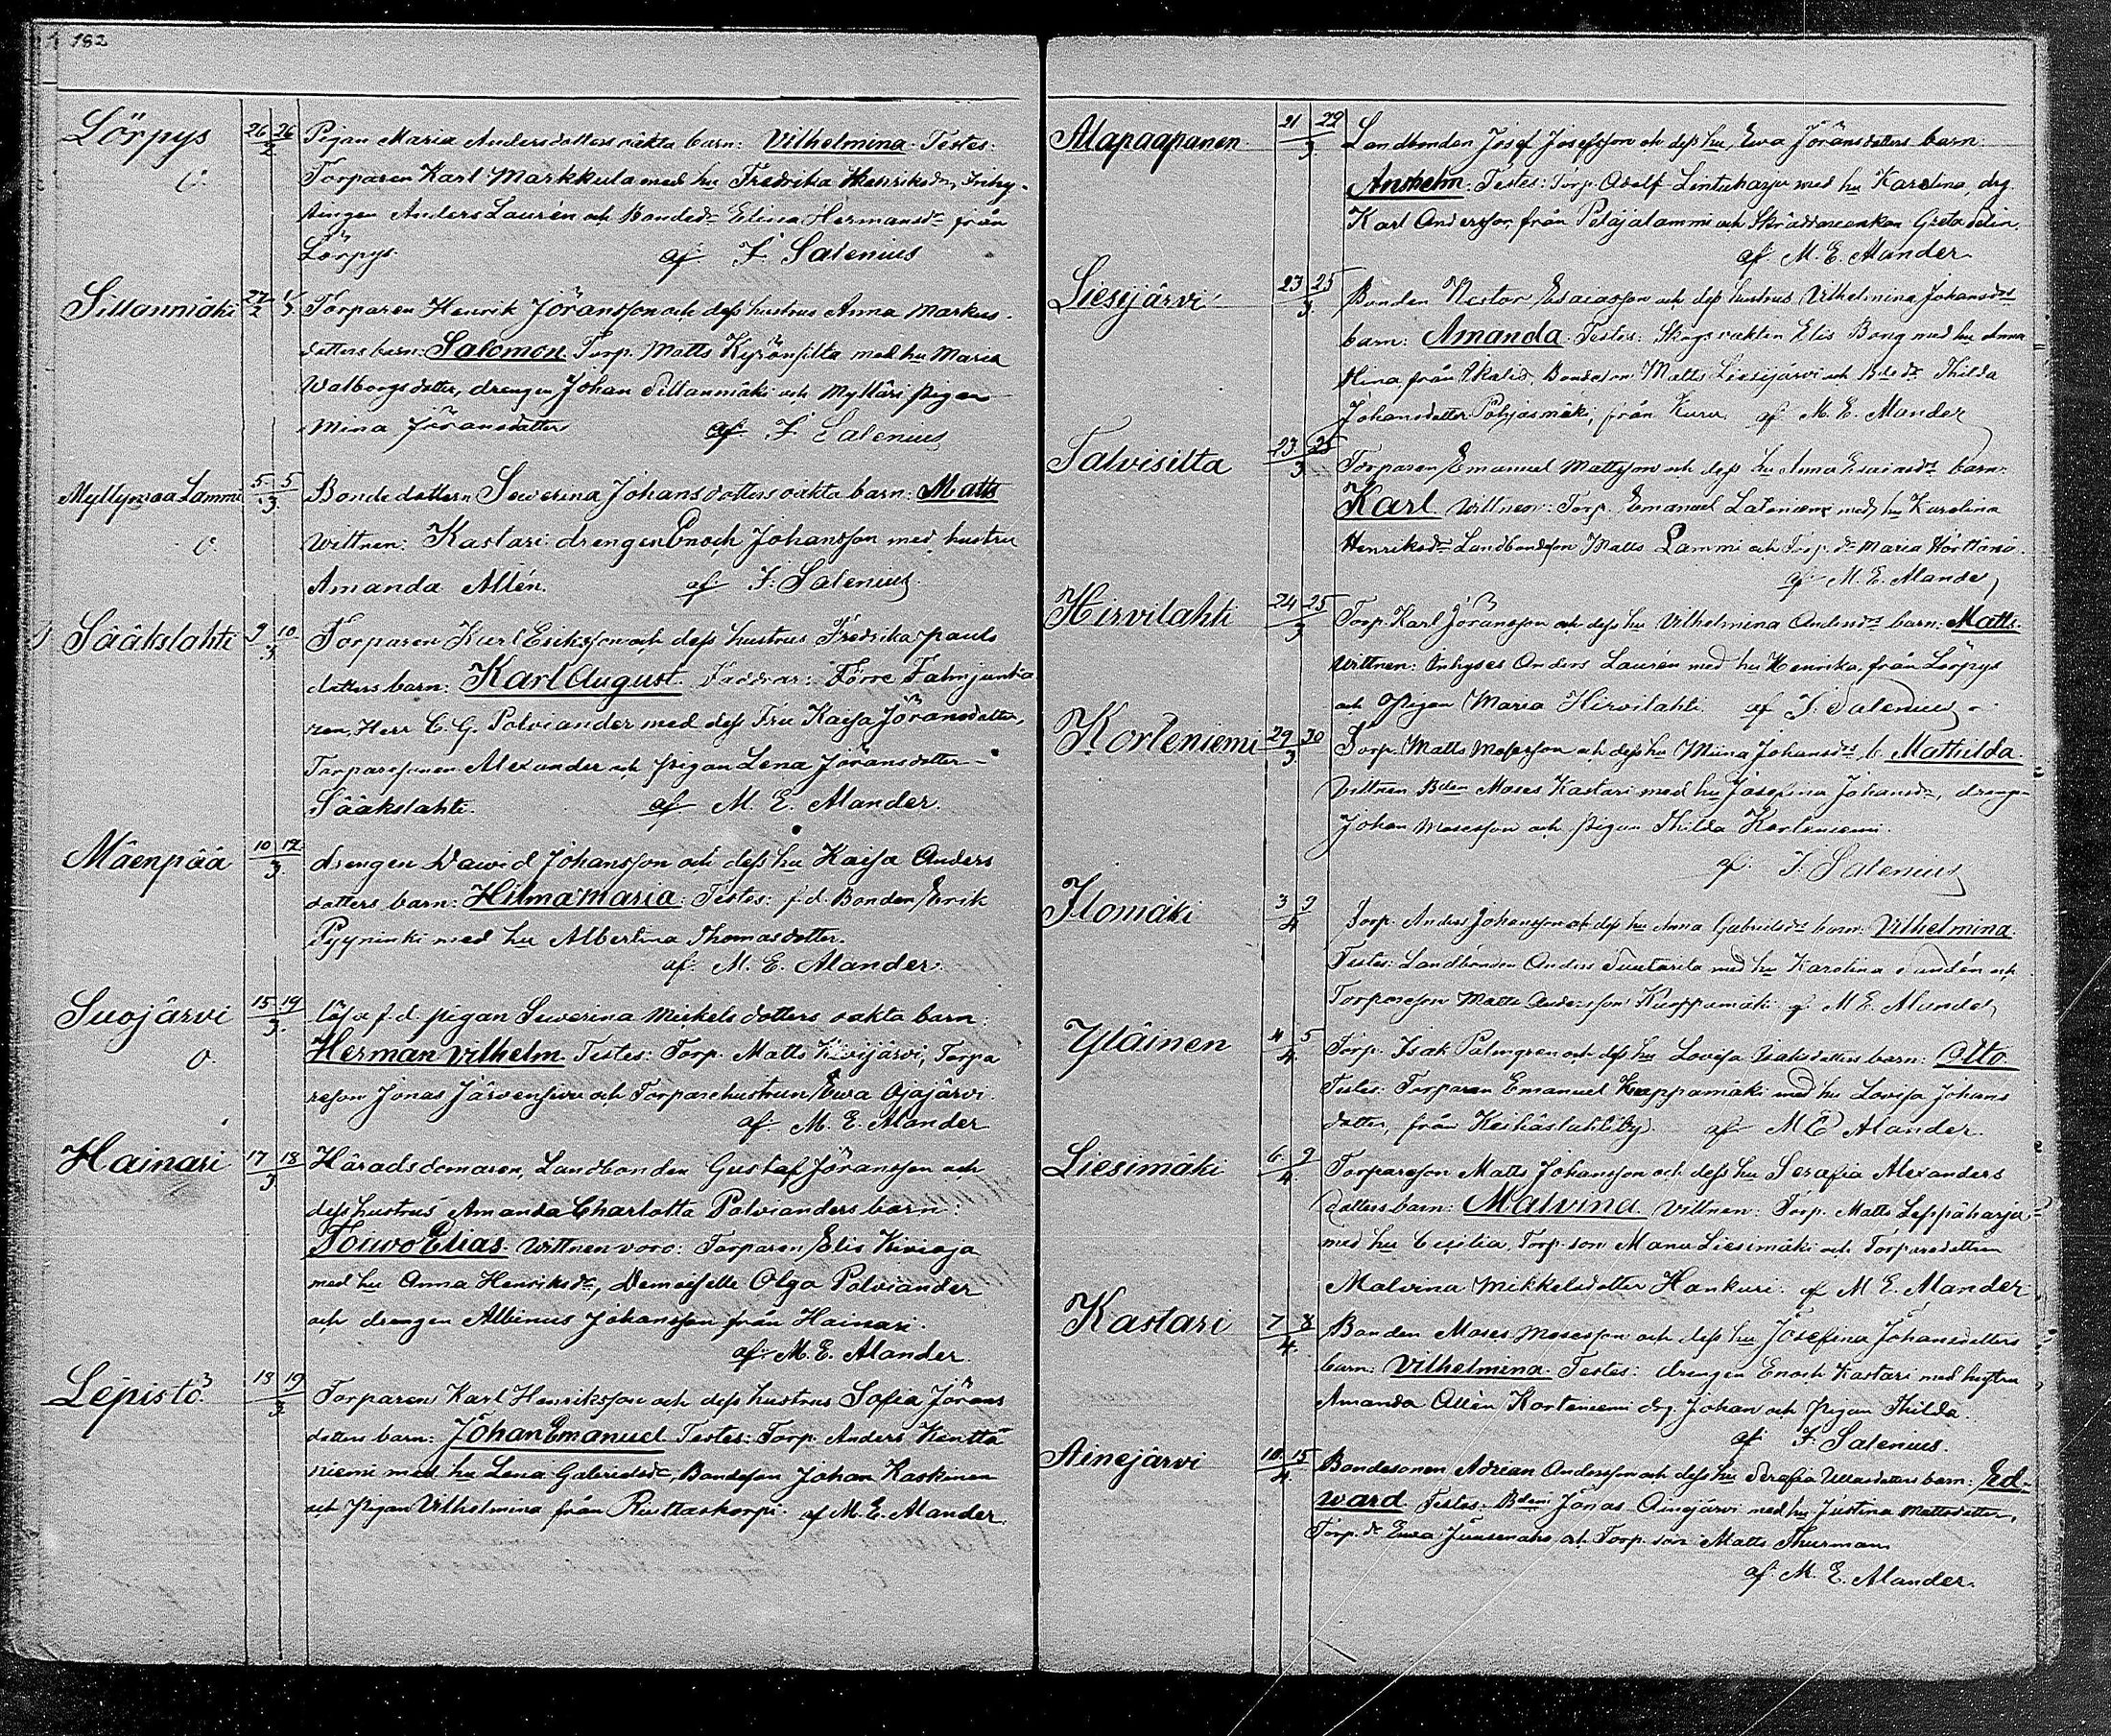 182
Lörpys 26 26 Pigan Maria Andersdotters oäkta barn: Vilhelmina. Testes:
2
O. Torparen Karl Markkula med hu Fredrika Henriksdr, Inhy-
singen Anders Laurén och Bondedr Elina Hermansdr från
Lörpys. af F. Salenius
Sillanmäki 27/2 1/3 Torparen Henrik Jöransson och dess hustrus Anna Markus-
dotters barn: Salomon. Torp. Matts Kyrönsilta med hu Maria
Walborgsdotter, drengen Johan Sillanmäki och Mylläri pigan
Mina Jöransdotter af F. Salenius
Myllymaa Lammi 5 5 Bondedottern Sewerina Johansdotters oäkta barn: Matts
3.
O. Wittnen: Kastari drengen Enoch Johansson med hustru
Amanda Allén. af F. Salenius
Sääkslahti 9 10 Torparen Karl Eriksson och dess hustrus Fredrika Pauls
3
dotters barn: Karl August. Faddrar: Förre Fahnjunka-
ren, Herr C. G. Polviander med dess Fru Kajsa Jöransdotter,
Torparesonen Alexander och pigan Lena Jöransdotter
Sääkslahti. af M. E. Alander.
Mäenpää 10 12 drengen Dawid Johansson och dess hu Kaisa Anders
3.
dotters barn: Hilma Maria. Testes: f.d. Bonden Erik
Pyyninki med hu Albertina Thomasdotter.
af M. E. Alander.
Suojärvi 15 19 lösa f.d. pigan Sewerina Mickelsdotters oäkta barn:
3.
O. Herman Vilhelm. Testes: Torp. Matts Kivijärvi, Torpa
reson Jonas Järvensivu och Torparehustrun Ewa Ojajärvi.
af M. E. Alander
Hainari 17 18 Häradsdomaren, Landbonden Gustaf Jöransson och
3
dess hustrus Amanda Charlotta Polvianders barn:
Toiwo Elias. Wittnen voro: Torparen Elis Kivioja
med hu Anna Henriksdr, Demoiselle Olga Polviander
och drengen Albinus Johansson från Hainari.
af M. E. Alander.
Lepistö 18 19 Torparen Karl Henriksson och dess hustrus Sofia Jörans
3
dotters barn: Johan Emanuel. Testes: Torp. Anders Kenttä
niemi med hu Lena Gabrielsdr, Bondeson Johan Koskinen
och Pigan Vilhelmina från Ruttaskorpi. af M. E. Alander.
Alapaapanen 21 22 Landbonden Josef Josefsson och dess hu Ewa Jöransdotters barn:
3.
Anshelm. Testes: Torp. Adolf Lintuharju med hu Karolina, drg.
Karl Andersson, från Petäjälammi och Skräddareenkan Greta
af M. E. Alander
Liesijärvi 23 25 Bonden Nestor Esaiasson och dess hustrus Vilhelmina Johansdrs
3.
barn: Amanda. Testes: Skogsvakten Elis Bong med hu Anna
Stina, från Ikalis, Bondeson Matts Liesijärvi och Bdedr Thilda
Johansdotter Pohjasmäki, från Kuru. af M. E. Alander
Talvisilta 23 25 Torparen Emanuel Mattsson och dess hu Anna Esaiasdrs barn:
3
Karl. Vittnen: Torp. Emanuel med hu Karolina
Henriksdr Landbondeson Matts Lammi och Torp.dr Maria
af M. E. Alander
Hirvilahti 24 25 Torp. Karl Jöransson och dess hu Vilhelmina Andersdrs barn: Matts.
3
Wittnen: Inhyses Anders Laurén med hu Henrika, från Lörpys
och Pigan Maria Hirvilahti af F. Salenius
Korteniemi 29 30 Torp. Matts Mosesson och dess hu Miina Johansdrs b. Mathilda.
3
Vittnen Bden Moses Kastari med hu Josefina Johansdr, dreng-
Johan Mosesson och Pigan Thilda Korteniemi.
af F. Salenius
Ilomäki 3 9 Torp. Anders Johansson och dess hu Anna Gabrielsdrs barn: Vilhelmina.
4
Testes: Landbonden Anders med hu Karolina och
Torpareson Matts Andersson Kuoppamäki. af M E. Alander
Yläinen 4 5 Torp. Isak Palmgren och dess hu Lovisa Isaksdotters barn: Otto.
4.
Testes: Torparen Emanuel Kuppamäki med hu Lovisa Johans
dotter, från Keihäslahti by. af M E Alander.
Liesimäki 6 9 Torpareson Matts Johansson och dess hu Serafia Alexanders
4.
dotters barn: Malvina. Vittnen: Torp. Matts Leppäharju
med hu Cecilia, Torp.son Manu Liesimäki och Torparedottren
Malvina Mikkelsdotter Hankuri. af M E. Alander
Kastari 7 8 Bonden Moses Mosesson och dess hu Josefina Johansdotters
4.
barn: Vilhelmina. Testes: drengen Enoch Kastari med hustru
Amanda Allén Korteniemi drg. Johan och Pigan Thilda.
af F. Salenius.
Ainejärvi 10 15 Bondesonen Adrian Andersson och dess hu Serafia barn: Ed-
4
ward. Testes: Bden Jonas Ainejärvi med hu Justina Mattsdotter,
Torp.dr Ewa och Torp.son Matts Thurman
af M. E. Alander.